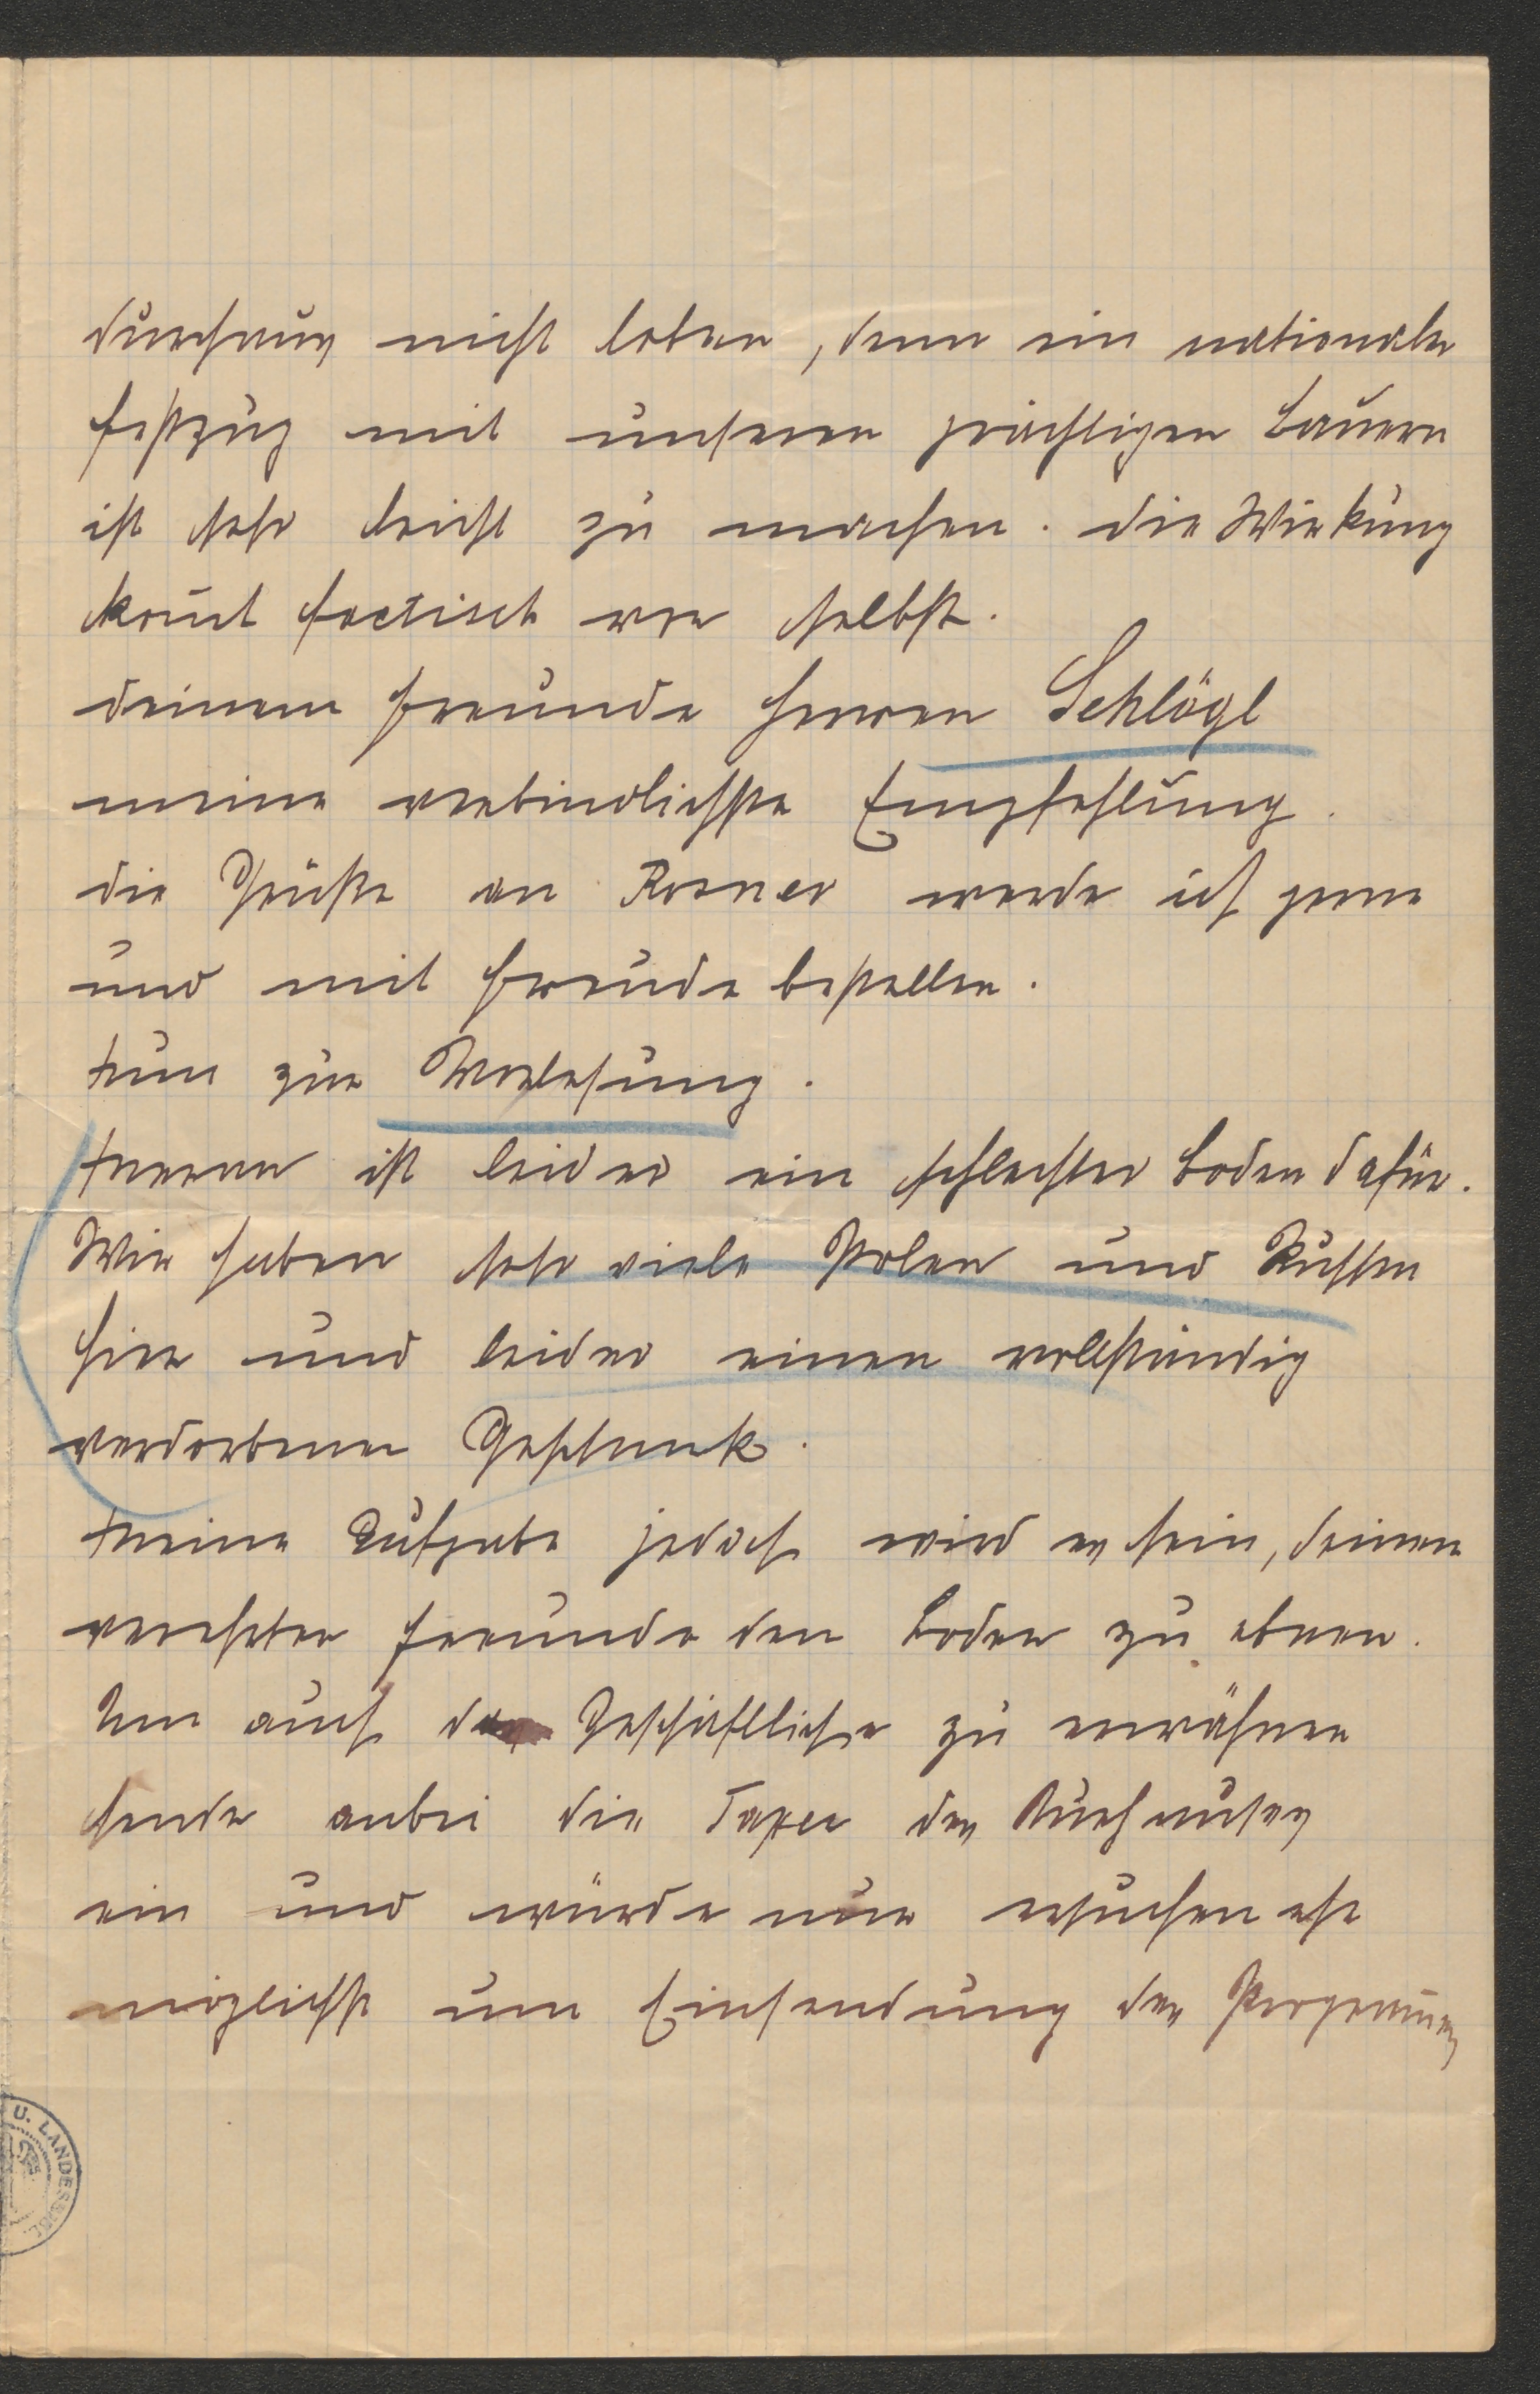 durchaus nicht loben, denn ein nationaler
Festzug mit unseren prächtigen Bauern
ist sehr leicht zu machen. Die Wirkung
kom̅t factisch von selbst.
Deinem Freunde Herren Schlögl
meine verbindlichste Empfehlung.
Die Grüße an Rosner werde ich gerne
und mit Freude bestellen.
Nun zur Vorlesung.
Meran ist leider ein schlechter Boden dafür.
Wir haben sehr viele Polen und Russen
hier und leider einen vollständig
verdorbenen Geschmack.
Meine Aufgabe jedoch wird es sein, deinem
verehrten Freunde den Boden zu ebnen.
Um auch das Geschäftliche zu erwähnen
sende anbei die Taxen des Kurhauses
ein und würde nur ersuchen ehe
möglichst um Einsendung des Programmes
U. LANDESBIBL.